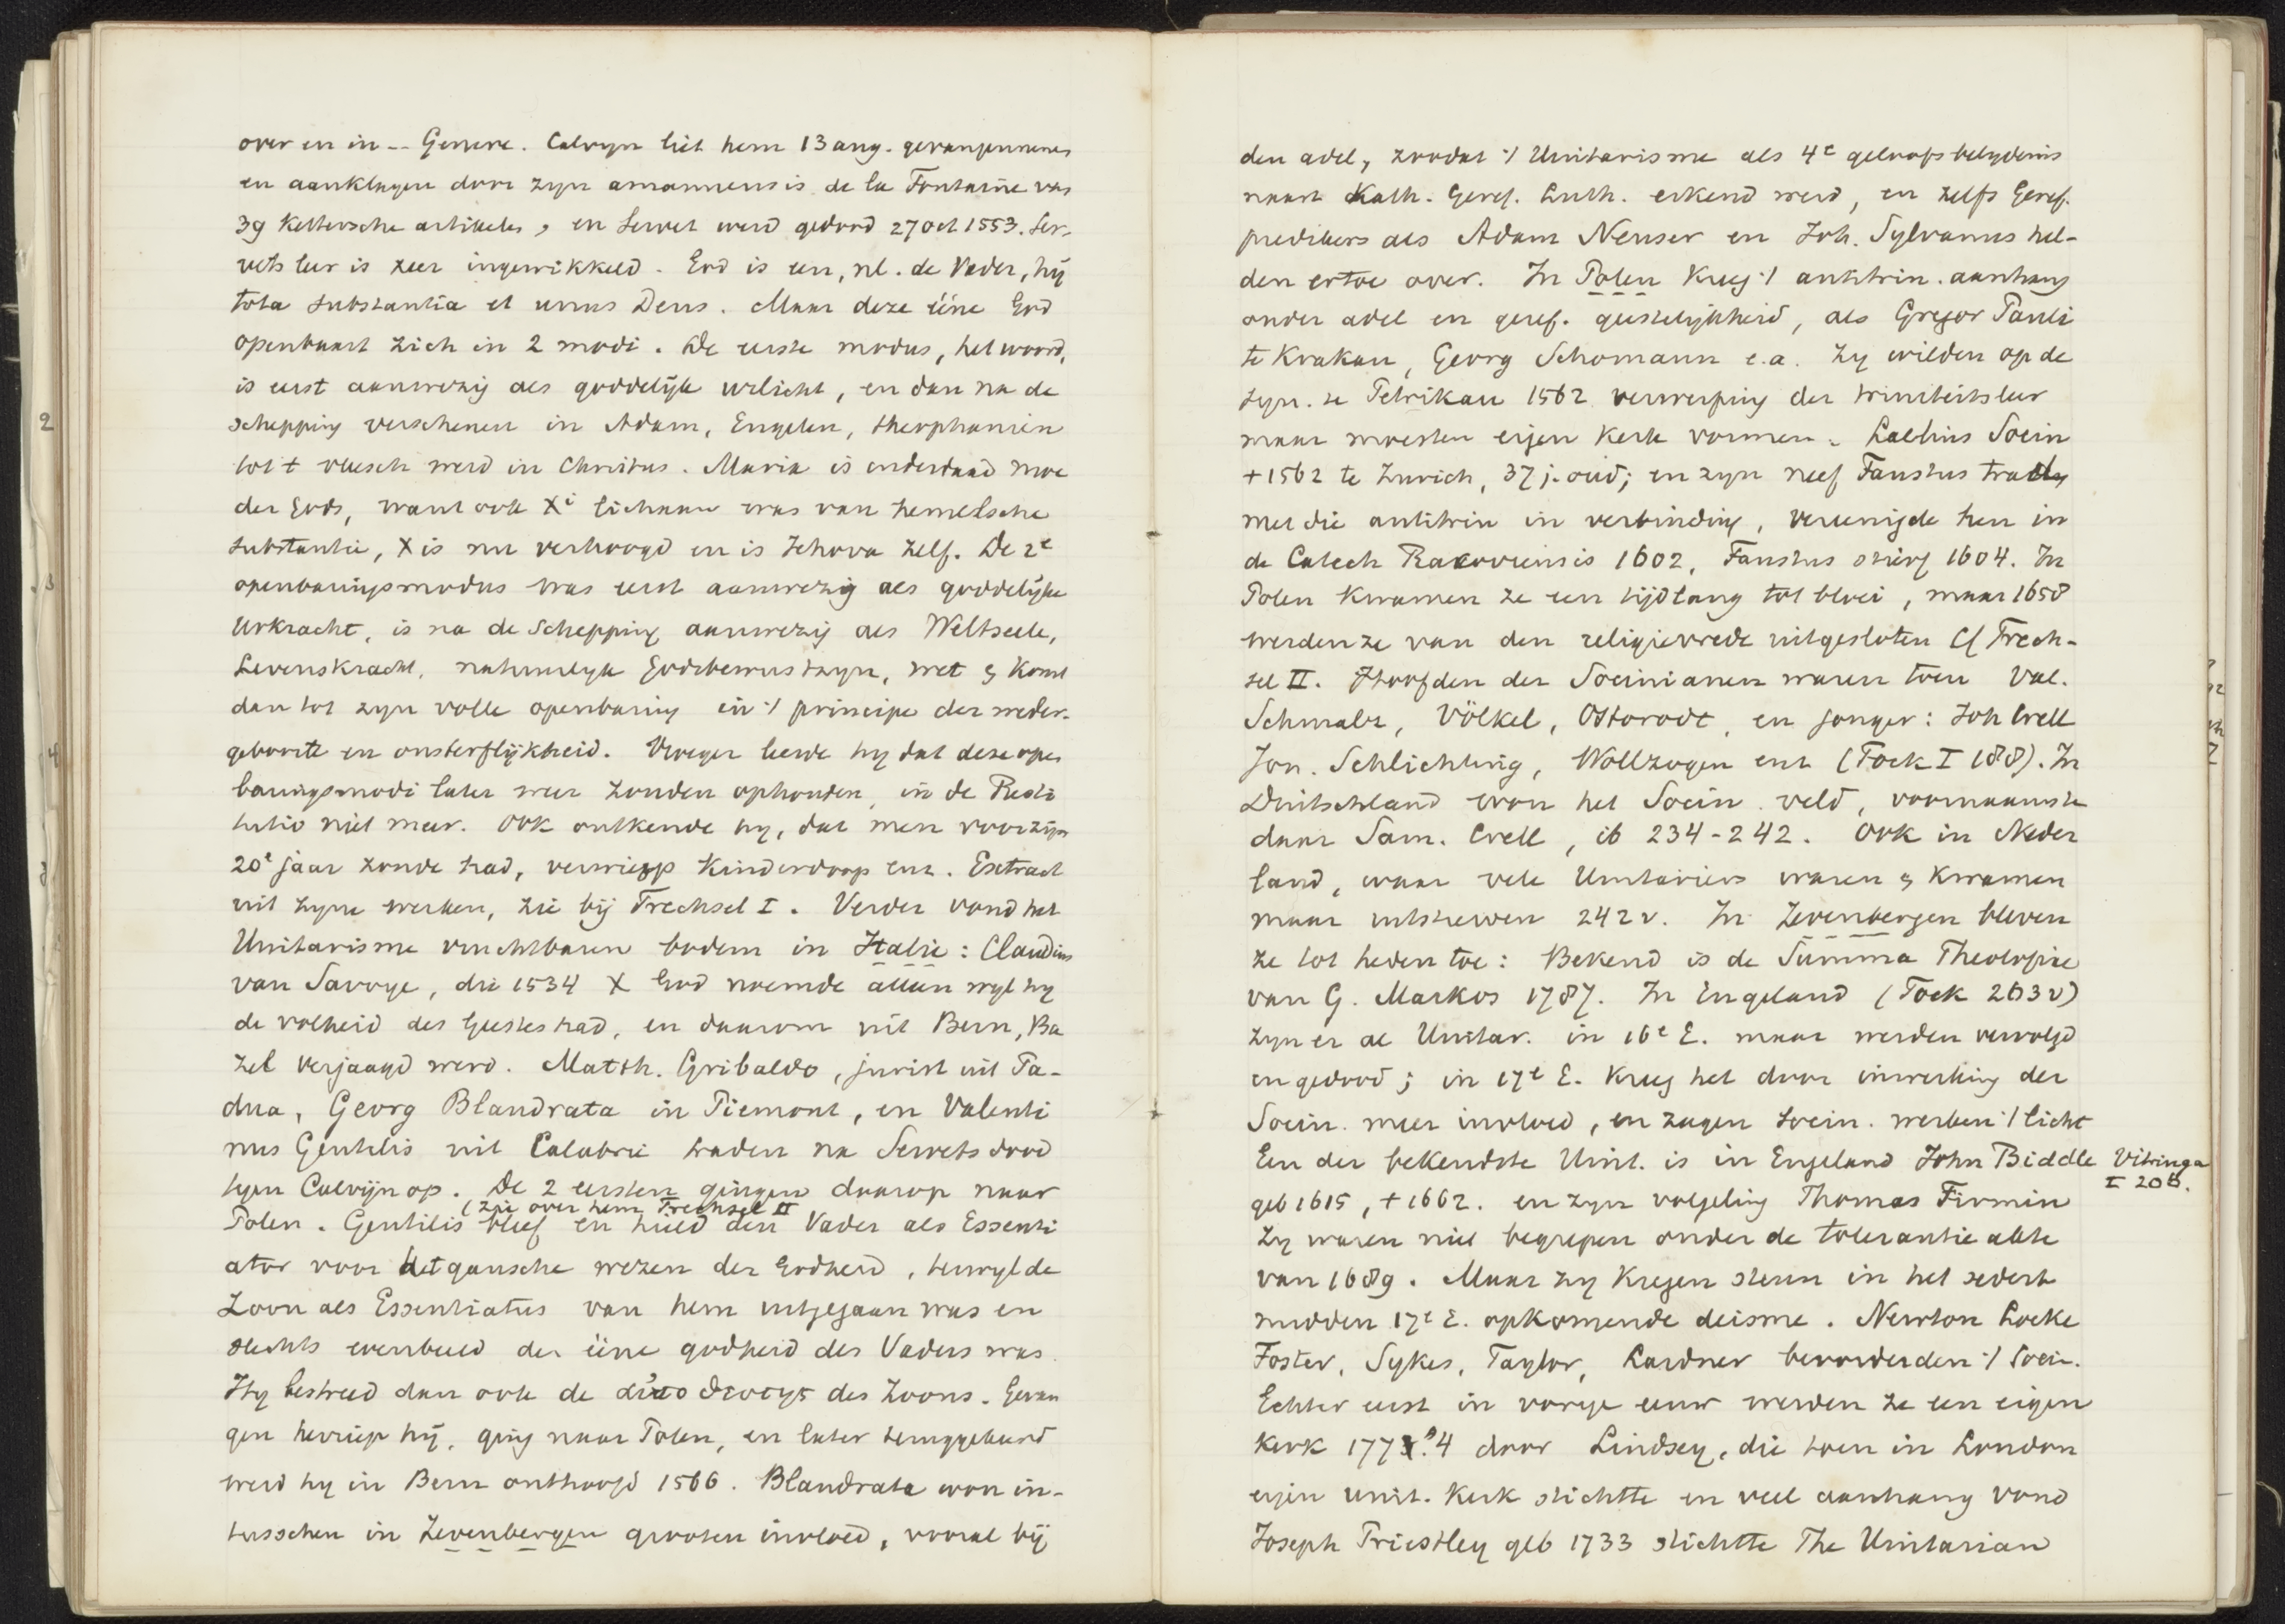 over en in -- Geneve. Calvyn liet hem 13 aug. gevangennemen
en aanklagen door zyn amanuensis de la Fontaine van
39 kettersche artikelen, en Servet werd gedood 27 Oct 1553. Ser-
vets leer is zeer ingewikkeld. God is een, nl. de Vader, hij
tota substantia et unus Deus. Maar deze ééne God
openbaart zich in 2 modi. De eerste modus, het woord,
is eerst aanwezig als goddelijk urlicht, en dan na de
schepping verschenen in Adam, Engelen, theophanien
tot t vleesch werd in Christus. Maria is inderdaad moe
der Gods, want ook Xi lichaam was van hemelsche
substantie, X is nu verhoogd en is Jehova zelf. De 2e
openbaringsmodus was eerst aanwezig als goddelijke
Urkracht, is na de Schepping aanwezig als Weltseele,
Levenskracht, natuurlyk Godsbewustzyn, wet & komt
dan tot zyn volle openbaring in 't principe der weder-
geboorte en onsterflijkheid. Vroeger leerde hy dat deze open
baringsmodi later weer zouden ophouden, in de Resti
tutio niet meer. Ook ontkende hy, dat men voor zijn
20e jaar zonde had, verwierp Kinderdoop enz. Extract
uit zyne werken, zie bij Trechsel I. Verder vond het
Unitarisme vruchtbaren bodem in Italie: Claudius
van Savoye, die 1534 X God noemde alleen wyl hy
de volheid des Geestes had, en daarom uit Bern, Ba
zel verjaagd werd. Matth. Gribaldo, jurist uit Pa-
dua, Georg Blandrata in Piemont, en Valenti
nus Gentilis uit Calabrie traden na Servets dood
tegen Calvijn op. De 2 eersten gingen daarop naar
(zie over hem Trechsel II
Polen. Gentilis bleef en hield den Vader als Essenti
ator voor het gansche wezen der Godheid, terwyl de
Zoon als Essentiatus van hem uitgegaan was en
slechts evenbeeld der ééne godheid des Vaders was.
Hy bestreed dan ook de αὐτοθεοτης des Zoons. Gevan
gen herriep hij, ging naar Polen, en later teruggekeerd
werd hy in Bern onthoofd 1566. Blandrata won in-
tusschen in Zevenbergen grooten invloed, vooral bij
den adel, zoodat 't Unitarisme als 4e geloofsbelydenis
naast Kath. Geref. Luth. erkend werd, en zelfs Geref.
predikers als Adam Neuser en Joh. Sylvanus hel-
den ertoe over. In Polen kreeg 't antitrin. aanhang
onder adel en geref. geestelijkheid, als Gregor Pauli
te Krakau, Georg Schomann e.a. Zy wilden op de
syn. te Petrikau 1562 verwerping der triniteitsleer
maar moesten eigen kerk vormen. Laelius Socin
+ 1562 te Zurich, 37 j. oud; en zyn neef Faustus traden
met die antitrin in verbinding, vereenigde hen in
de Catech Racoviensis 1602, Faustus stierf 1604. In
Polen kwamen ze een tijdlang tot bloei, maar 1658
werden ze van den religievrede uitgesloten Cf Trech-
sel II. Hoofden der Socinianen waren toen Val.
Schmalz, Völkel, Ostorodt, en jonger: Joh Crell
Jon. Schlichting, Wollzogen enz (Fock I 188). In
Duitschland won het Socin. veld, voornaamste
daar Sam. Crell, ib 234-242. Ook in Neder
land, waar vele Unitariers waren & kwamen
maar 242v. In Zevenbergen bleven
ze tot heden toe: Bekend is de Summa Theologiae
van G. Markos 1787. In Engeland (Fock 263v)
zyn er al Unitar. in 16e E. maar werden vervolgd
en gedood; in 17e E. kreeg het door inwerking der
Socin. meer invloed, en zagen socin. werken 't licht
Een der bekendste Unit. is in Engeland John Biddle
Vitringa
I 206.
geb 1615, + 1662. en zyn volgeling Thomas Firmin
Zy waren niet begrepen onder de tolerantie akte
van 1689. Maar zy kregen steun in het sedert
midden 17e E. opkomende deisme. Newton Locke
Foster, Sykes, Taylor, Lardner bevorderden 't Socin.
Echter eerst in vorige eeuw werden ze een eigen
kerk 1773?4 door Lindsey, die toen in London
eigen unit. kerk stichtte en veel aanhang vond
Joseph Priestley geb 1733 stichtte The Unitarian